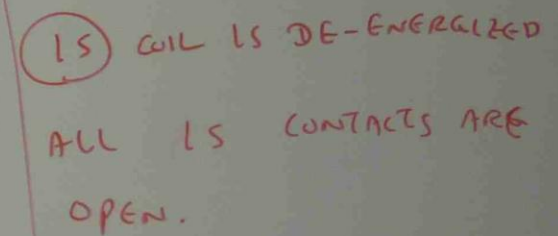 1S COIL IS DE-ENERGIZED
ALL 1S CONTACTS ARE
OPEN.